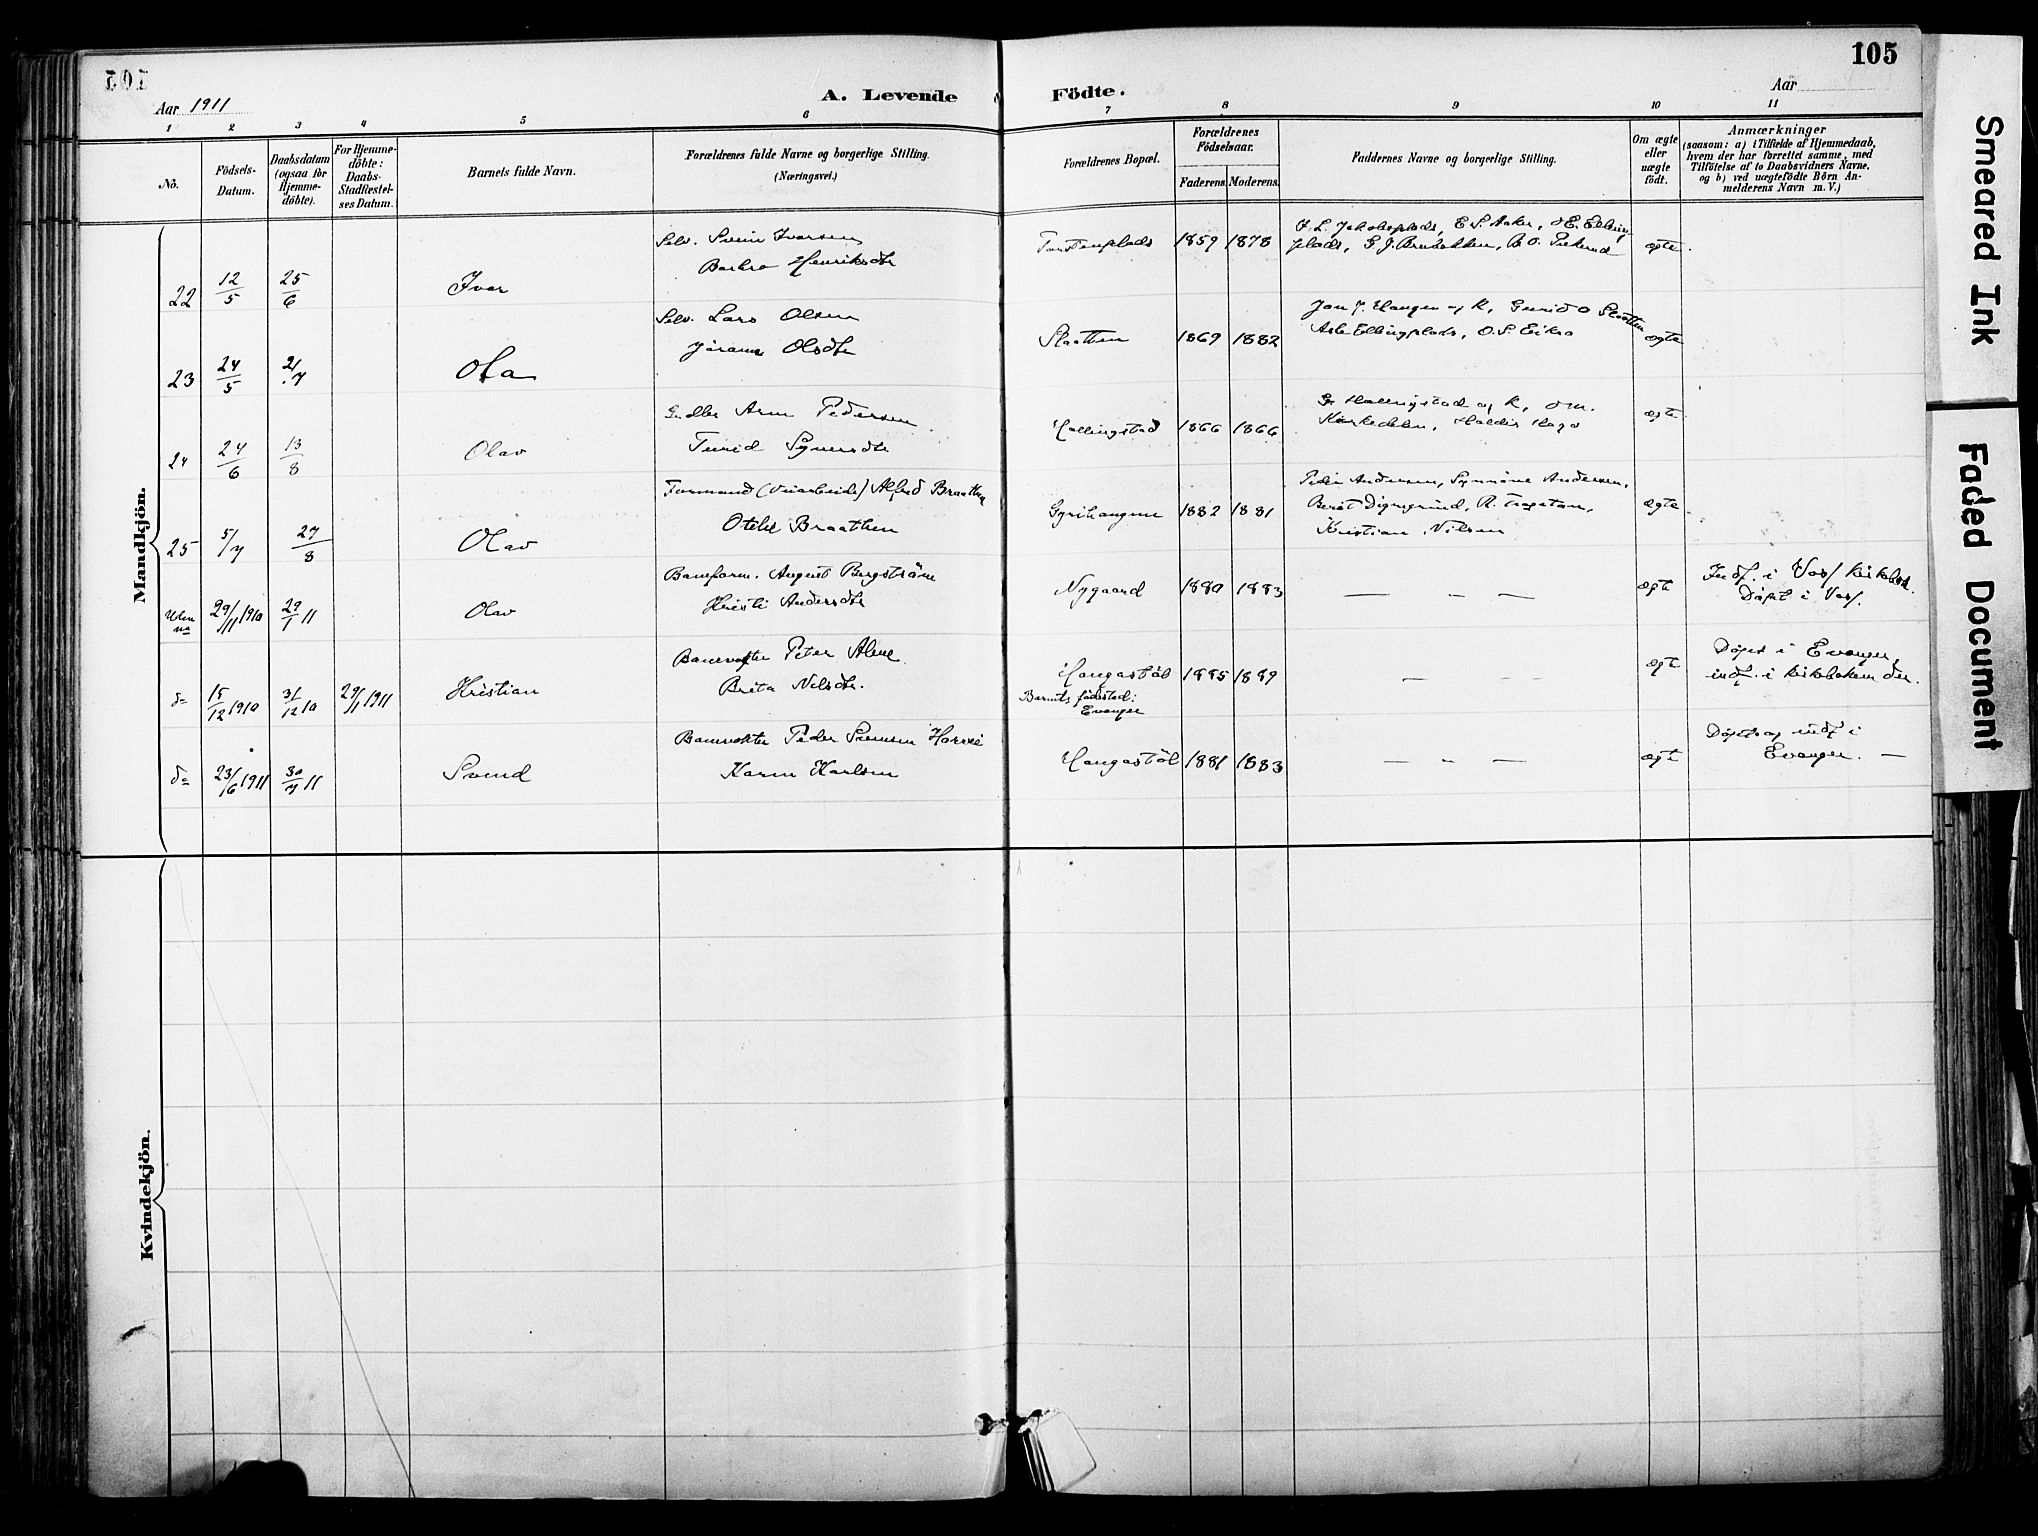 105
Aar 1911
A. Levende Födte.
Aar
1 2 3 4 5 6 7 8 9 10 11
No.
Födsels-Datum.
Daabsdatum (ogsaa for Hjemme-döbte).
For Hjemme-döbte: Daabs-Stadfæstel-ses Datum.
Barnets fulde Navn.
Forældrenes fulde Navne og borgerlige Stilling. (Næringsvei.)
Forældrenes Bopæl.
Forældrenes Födselsaar.
Faderens. Moderens.
Faddernes Navne og borgerlige Stilling.
Om ægte eller uægte født.
Anmærkninger
(saasom: a) i Tilfælde af Hjemmedaab,
hvem der har forrettet samme, med
Tilföielse af to Daabsvidners Navne,
og b) ved uægtefödte Börn An-
melderens Navn m. V.)
Mandkjön.
Selv. Svein Ivarsen
Barbro Henriksdtr
22 12/5 25/6 Ivar
Torstenplads 1859 1878
E. S. Aaker,
plads, ægte
Selv. Lars Olsen
Jørand Olsdtr
23 24/5 2/7 Ola
Slaatten 1869 1882
Jon J. Haugen og K, Gunid O Slaatten
Asle Ellingplads, O. S. Eikro ægte
Arne Pedersen
Turid
24 24/6 13/8 Olav
Hallingstad 1866 1866
Hallingstad og K, ægte
Formand (Veiarbeide) Alfred Braathen
Braathen
25 5/7 27/8 Olav
Gyrihaugen 1882 1881
Peder Andersen, Synnöve Andersen,
Kristian Nilsen ægte
Baneform. August Bergström
Kristi Andersdtr
Uden no 29/11 1910 29/1 11 Olav
Nygaard 1880 1883
— " — ægte
Indf. i Voss kirkebok.
Døpt i Voss.
Banevogter Peter
Brita Nilsdtr.
do 15/12 1910 31/12 10 29/1 1911 Kristian
Haugastøl 1885 1889
Barnets fødested:
Evanger
— " — ægte
Døpt i Evanger,
indf. i kirkeboken der.
Banevokter Peder
Karen Karlsen
do 23/6 1911 30/7 11 Svend
Haugastøl 1881 1883
— " — ægte
Døpt og indf i
Evanger. —
Kvindekjön.
Smeared Ink
Faded Document